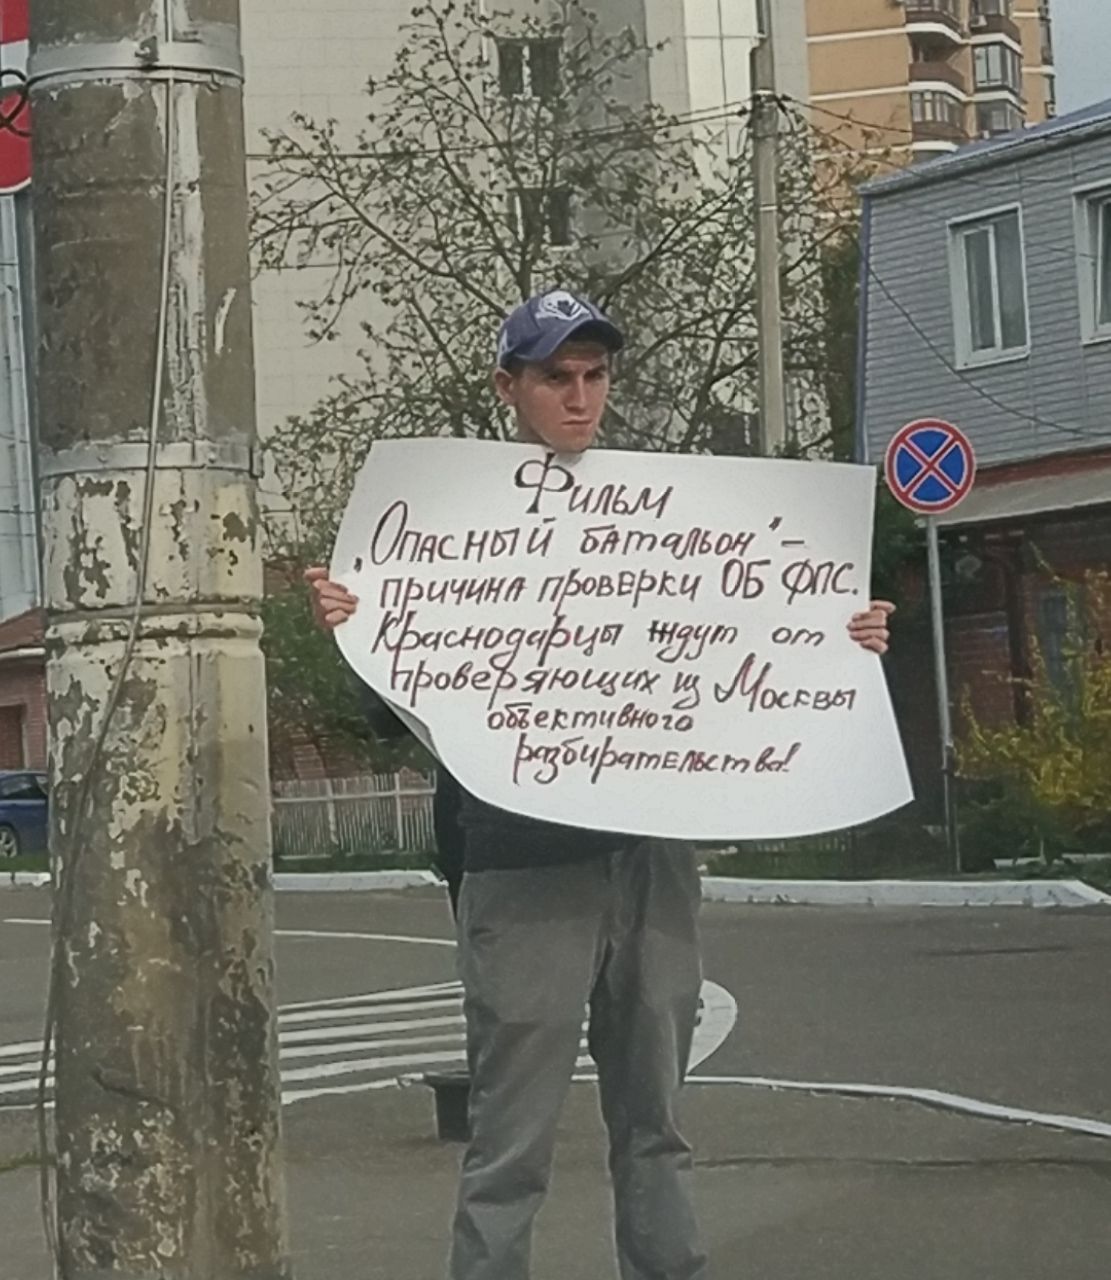 Фильм
„Опасный батальон" –
причина проверки ОБ ФПС.
Краснодарцы ждут от
проверяющих из Москвы
объективного
разбирательства!